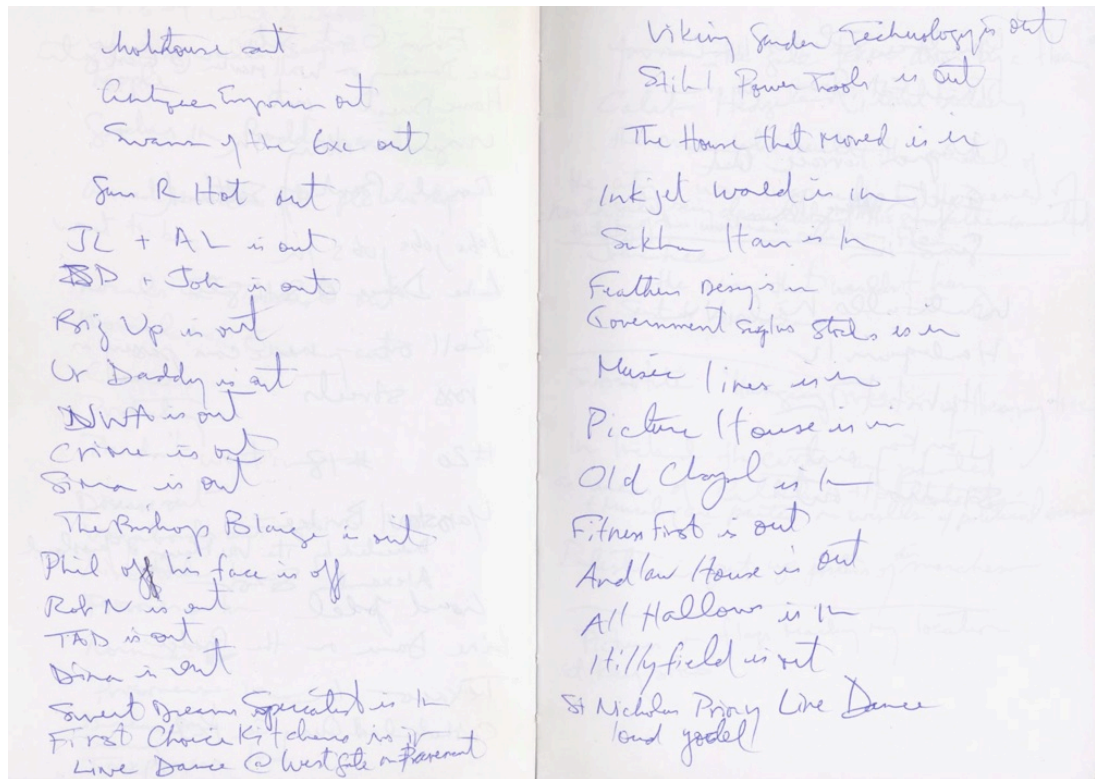 Malthouse out
Antiques Emporium out
Swans of the Exe out
Sun R Hot out
JL + AL is out
BD + Joh is out
Big Up is out
Ur Daddy is out
NWA is out
Crime is out
Sina is out
The Bishop Blaize is out
Phil off his face is off
Rob N is out
TAD is out
Dina is out
Sweet Dreams Specialist is In
First Choice Kitchens is in
Line Dance @ Westgate on Pavement
Viking Technology is out
Stihl Power Tools is out
The House that moved is in
Inkjet World is in
Hair is In
Design is in
Government Stocks is in
Music lines is in
Picture House is in
Old Chapel is In
Fitness First is out
Andlaw House is out
All Hallows is In
Hillyfield is out
St Nicholas Priory Line Dance
loud yodel!